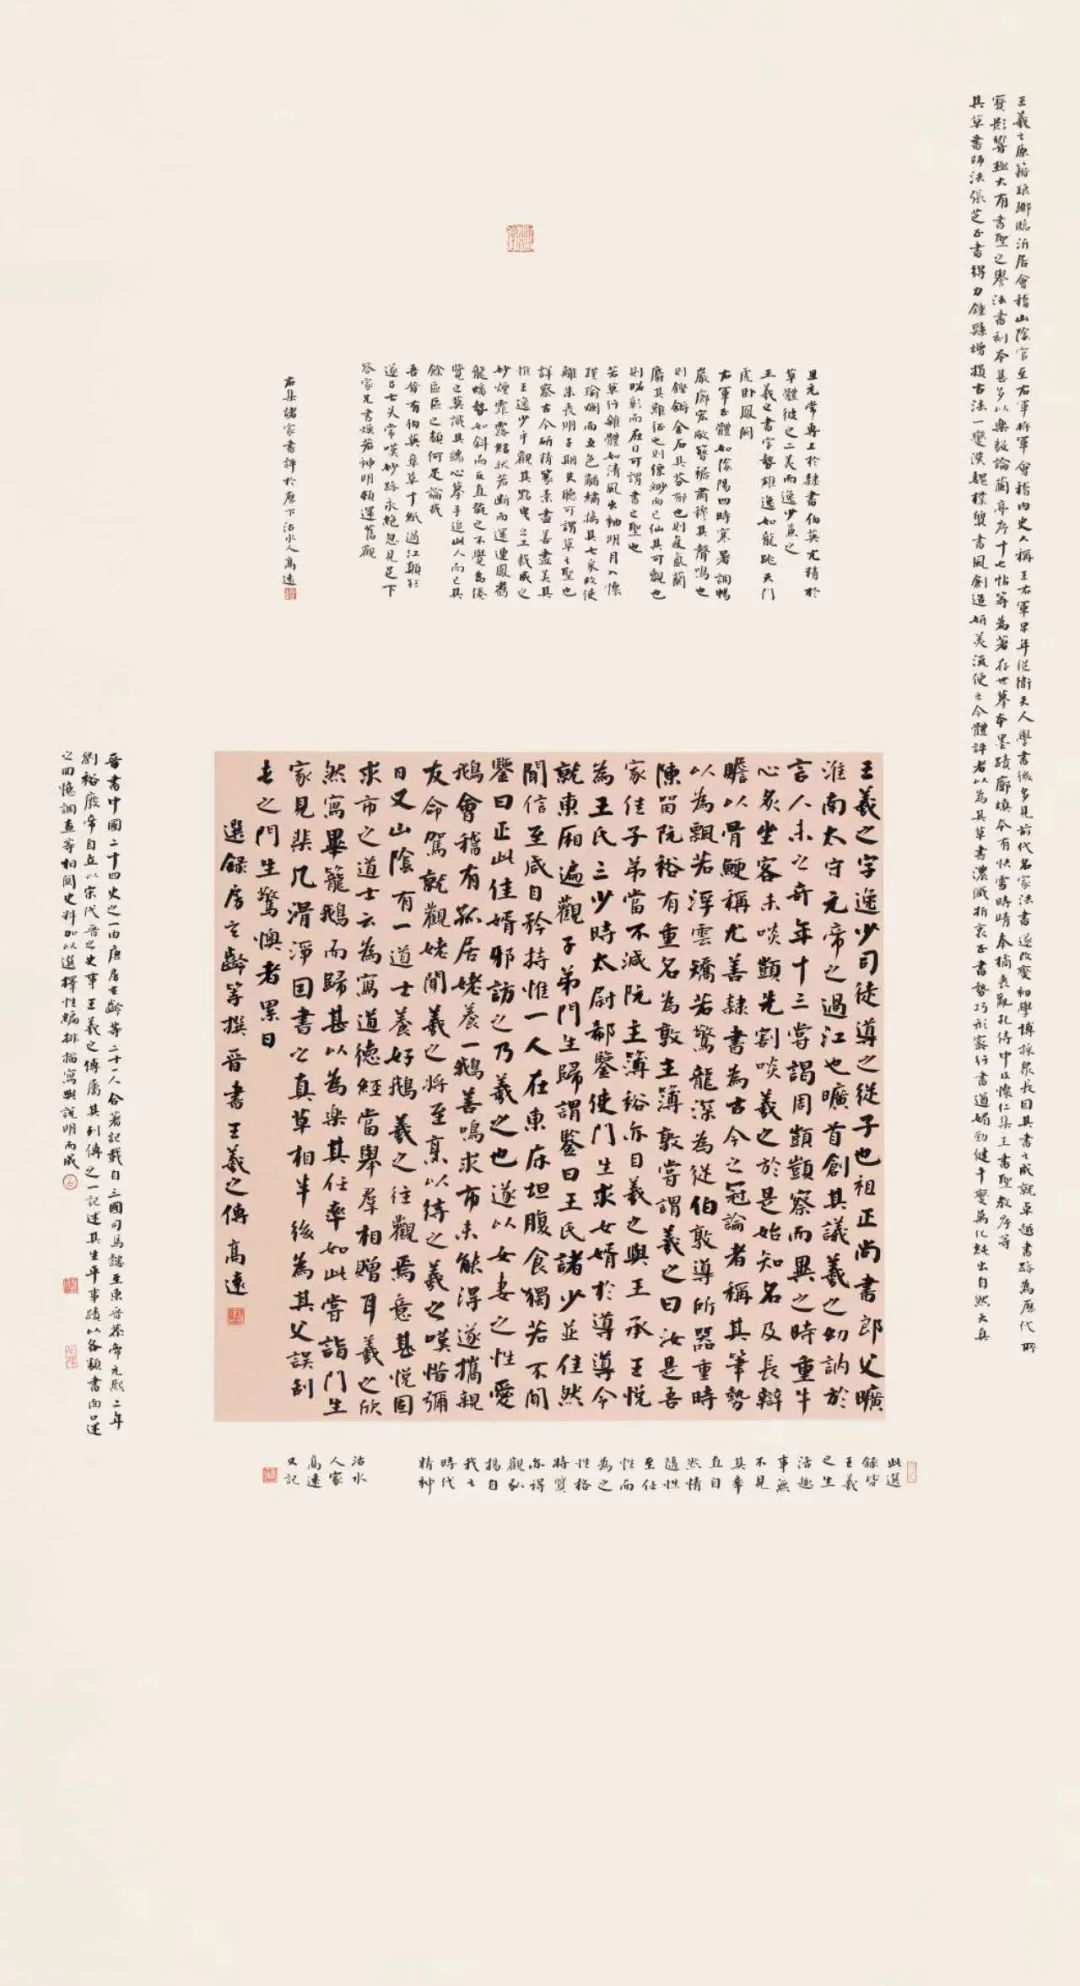 王羲之原籍琅琊臨沂居會稽山陰官至右軍將軍會稽内史人稱王右軍早年從衛夫人學書後多見前代名家法書遂改變初學博採衆長因其書之成就卓越書跡為歷代所
寶影響極大有書聖之譽法書刻本甚多以樂毅論蘭亭序十七帖等為著存世摹本墨蹟廓填今有快雪時晴奉橘喪亂孔侍中及懷仁集王書聖教序等
其草書師法張芝正書得力鍾繇增損古法一變漢魏樸質書風創造妍美流便之今體評者以為其草書濃纖折衷正書勢巧形密行書遒媚勁健千變萬化純出自然天真
且元常專工於隸書伯英尤精於
草體彼之二美而逸少兼之
王羲之書字勢雄逸如龍跳天門
虎卧鳳閣
右軍正體如陰陽四時寒暑調暢
巖廊宏敞簪裾肅穆其聲鳴也
則鏗鏘金石其芬郁也則氤氳蘭
麝其難征也則縹緲而已仙其可觀也
則昭彰而在目可謂書之聖也
若草行雜體如清風出袖明月入懷
瑾瑜爛而五色黼繡摛其七采故使
離朱喪明子期失聽可謂草之聖也
詳察古今研精篆素盡善盡美其
惟王逸少乎觀其點曳之工裁成之
妙煙霏露結狀若斷而還連鳳翥
龍蟠勢如斜而反直翫之不覺為倦
覽之莫識其端心摹手追此人而已其
餘區區之類何足論哉
吾昔有伯英章草十紙過江顛狽
遂乃亡失常嘆妙跡永絶忽見足下
答家兄書煥若神明頓還舊觀
右集諸家書評於歷下沽水人高遠
王羲之字逸少司徒導之從子也祖正尚書郎父曠
淮南太守元帝之過江也曠首創其議羲之幼訥於
言人未之奇年十三嘗謁周顗顗察而異之時重牛
心炙坐客未啖顗先割啖羲之於是始知名及長辯
贍以骨鯁稱尤善隸書為古今之冠論者稱其筆勢
以為飄若浮雲矯若驚龍深為從伯敦導所器重時
陳留阮裕有重名為敦主簿敦嘗謂羲之曰汝是吾
家佳子弟當不減阮主簿裕亦目羲之與王承王悦
為王氏三少時太尉郗鑒使門生求女婿於導導令
就東厢遍觀子弟門生歸謂鑒曰王氏諸少並佳然
聞信至咸自矜持惟一人在東床坦腹食獨若不聞
鑒曰正此佳婿邪訪之乃羲之也遂以女妻之性愛
鵝會稽有孤居姥養一鵝善鳴求市未能得遂攜親
友命駕就觀姥聞羲之將至烹以待之羲之嘆惜彌
日又山陰有一道士養好鵝羲之往觀焉意甚悦固
求市之道士云為寫道德經當舉羣相贈耳羲之欣
然寫畢籠鵝而歸甚以為樂其任率如此嘗詣門生
家見棐几滑淨因書之真草相半後為其父誤刮
去之門生驚懊者累日
選録房玄齡等撰晉書王羲之傳 高遠
晉書中國二十四史之一由唐房玄齡等二十一人合著記載自三國司馬懿至東晉恭帝元熙二年
劉裕廢帝自立以宋代晉之史事王羲之傳屬其列傳之一記述其生平事蹟以各類書面口述
之回憶調查等相關史料加以選擇性編排描寫與說明而成
此選
録皆
王羲
之生
活趣
事無
不見
其率
直自
然情
隨性
至任
性而
為之
性格
特質
亦得
觀弘
揚自
我之
時代
精神
沽水
人家
高遠
又記